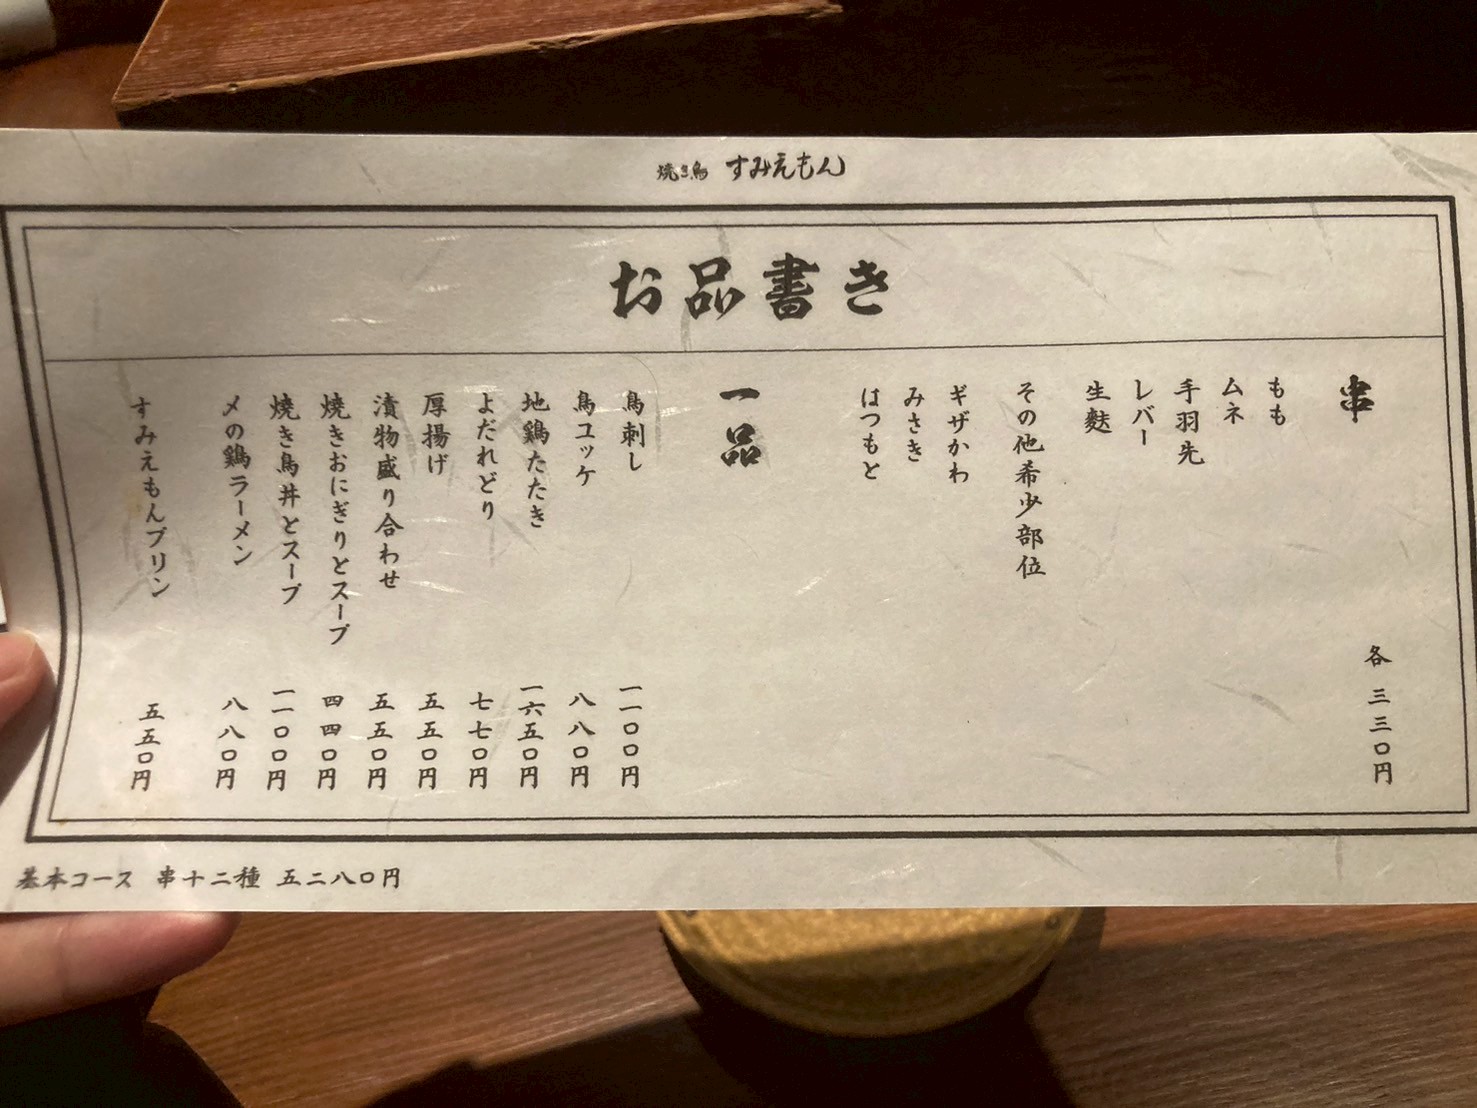 焼き鳥 すみえもん
お品書き
串
各 三三〇円
もも
ムネ
手羽先
レバー
生麩
その他希少部位
ギザかわ
みさき
はつもと
一品
鳥刺し 一一〇〇円
鳥ユッケ 八八〇円
地鶏たたき 一六五〇円
よだれどり 七七〇円
厚揚げ 五五〇円
漬物盛り合わせ 五五〇円
焼きおにぎりとスープ 四四〇円
焼き鳥丼とスープ 一一〇〇円
〆の鶏ラーメン 八八〇円
すみえもんプリン 五五〇円
基本コース 串十二種 五二八〇円